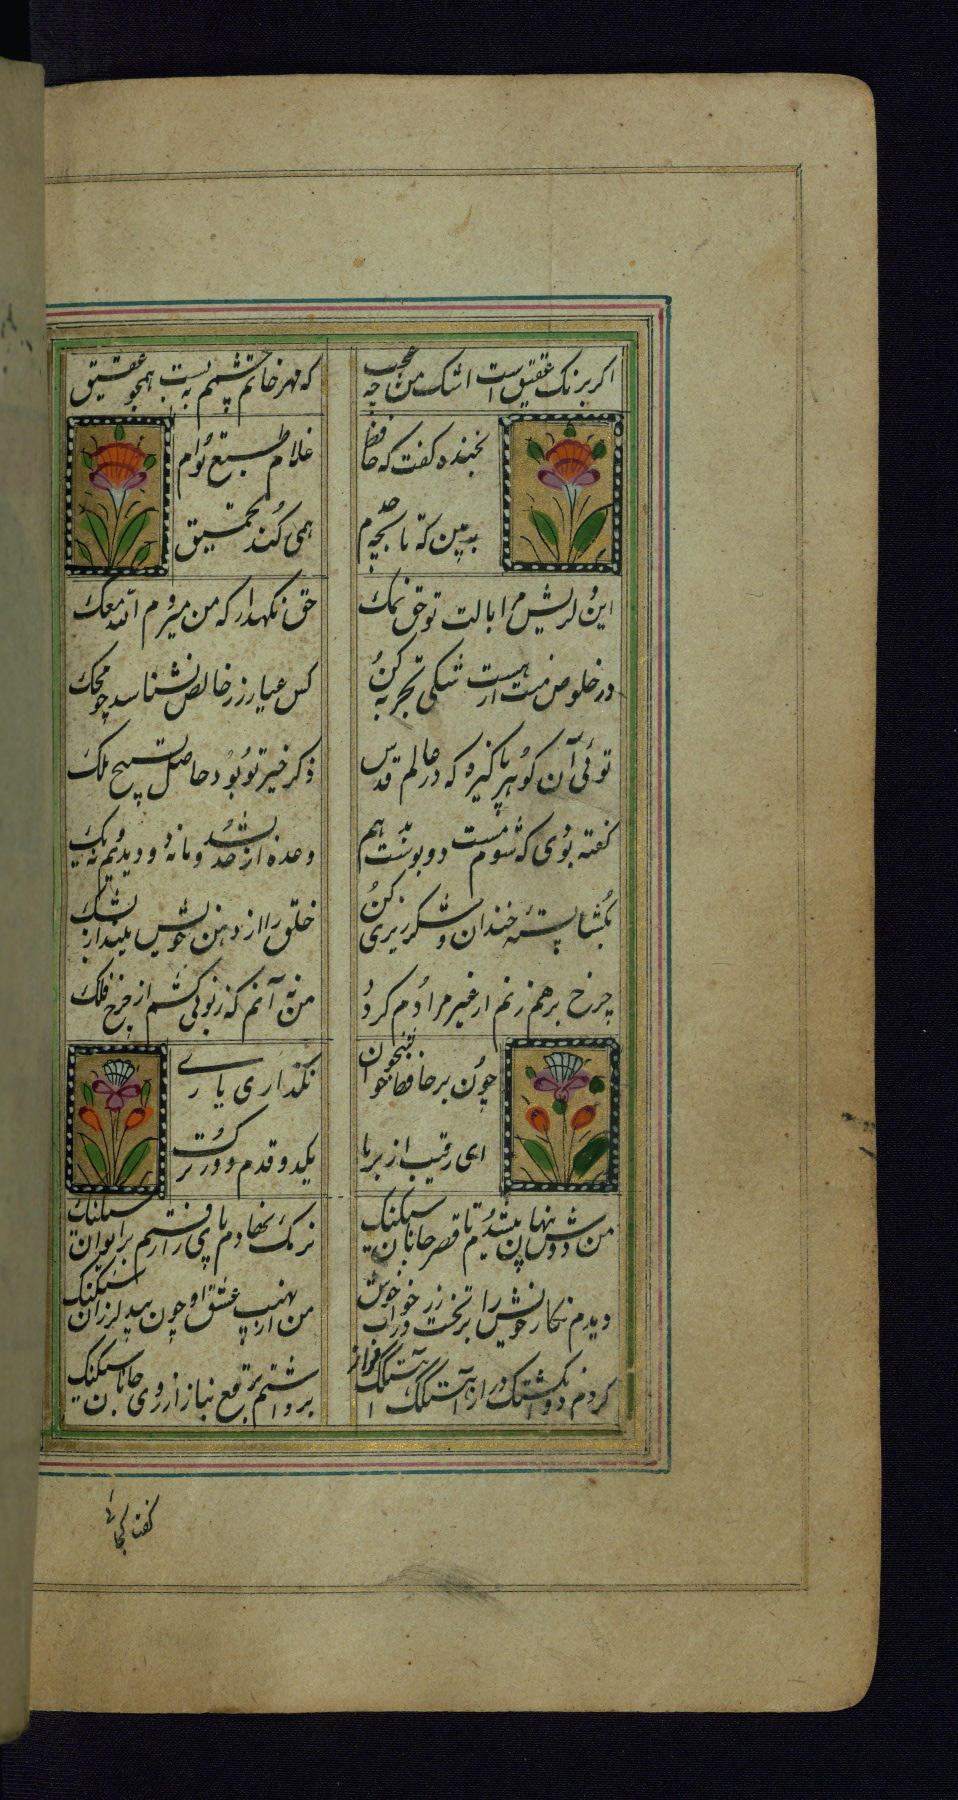 اگر برنگ عقیق است اشک من چه عجب
که مهر خاتم چشمم به بست همچو عقیق
بخنده گفت که حافظ
غلام طبع توام
به بین که تا بچه حدم
همی کند تحمیق
ای دل ریش مرا با لب تو حق نمک
حق نگهدار که من میروم الله معک
در خلوص منت ار هست شکی تجربه کن
کس عیار زر خالص نشناسد چو محک
توئی آن گوهر پاکیزه که در عالم قدس
ذکر خیر تو بود حاصل تسبیح ملک
گفته بودی که شوم مست و دو بوست بدهم
وعده از حد بشد و ما نه دو دیدیم نه یک
بگشا پسته خندان و شکر ریزی کن
خلق را از دهن خویش مینداز بشک
چرخ برهم زنم ار غیر مرادم گردد
من نه آنم که زبونی کشم از چرخ فلک
چون بر حافظ خویشش
نگذاری یارے
ای رقیب از بر ما
یکدو قدم دورترک
من دوش پنهان میشدم تا قصر جانان سنگنک
نرمک نهادم پای را رفتم بر ایوان سنگنک
دیدم نگار خویش را بر تخت زر در خواب خوش
من از نهیب عشق او چون بید لرزان سنگنک
کردم دو انگشتک دراز آهستگک آهستگک فراز
برداشتم برقع نیاز از روی جانان سنگنک
گفت کجائے